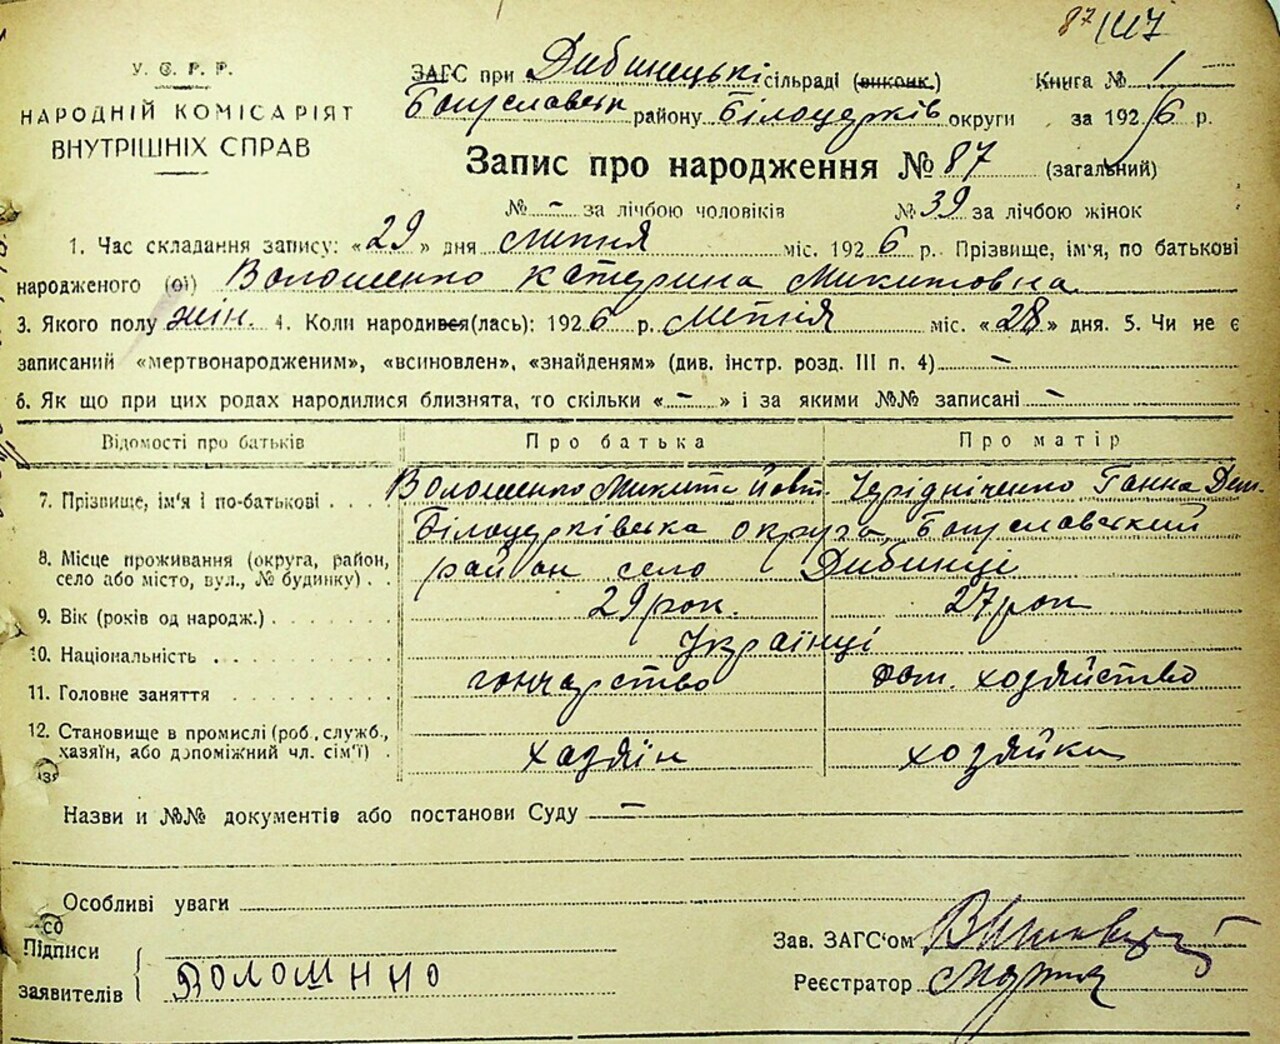 87/147
У. С. Р. Р.
НАРОДНІЙ КОМІСАРІЯТ
ВНУТРІШНІХ СПРАВ
ЗАГС при Дибинецькі сільраді (виконк.) Книга № 1
Богуславськ району Білоцерків округи за 1926 р.
Запис про народження № 87 (загальний)
№ – за лічбою чоловіків № 39 за лічбою жінок
1. Час складання запису: «29» дня липня міс. 1926 р. Прізвище, ім'я, по батькові
народженого (ої) Волошенко Катерина Микитовна
3. Якого полу жін. 4. Коли народився(лась): 1926 р. липня міс. «28» дня. 5. Чи не є
записаний «мертвонародженим», «всиновлен», «знайденям» (див. інстр. розд. III п. 4) –
6. Як що при цих родах народилися близнята, то скільки « – » і за якими №№ записані –
Відомості про батьків Про батька Про матір
7. Прізвище, ім'я і по-батькові Волошенко Микита Йовт. Чередніченко Ганна Дем.
8. Місце проживання (округа, район, село або місто, вул., № будинку) Білоцерківська округа Богуславський
район село Дибинці
9. Вік (років од народж.) 29 рок. 27 рок
10. Національність Українці
11. Головне заняття гончарство дом. хозяйство
12. Становище в промислі (роб., служб., хазяїн, або допоміжний чл. сім'ї) хазяін хозяйка
Назви и №№ документів або постанови Суду –
Особливі уваги
Підписи
заявителів Воломнно
Зав. ЗАГС'ом
Реєстратор